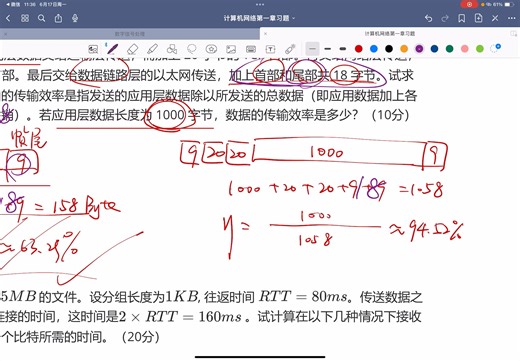 微信 11:36 6月17日周一
61%
计算机网络第一章习题
数字信号处理
计算机网络第一章习题
部。最后交给数据链路层的以太网传送，加上首部和尾部共 18 字节。试求
的传输效率是指发送的应用层数据除以所发送的总数据（即应用数据加上各
）。若应用层数据长度为 1000 字节，数据的传输效率是多少？（10分）
帧尾
9
9 20 20 1000 9
= 158 Byte
1000 + 20 + 20 + 9 + 89 = 1058
≈ 63.29%
η = 1000 / 1058 ≈ 94.52%
5MB 的文件。设分组长度为1KB, 往返时间 RTT = 80ms。传送数据之
连接的时间，这时间是2 × RTT = 160ms 。试计算在以下几种情况下接收
一个比特所需的时间。（20分）